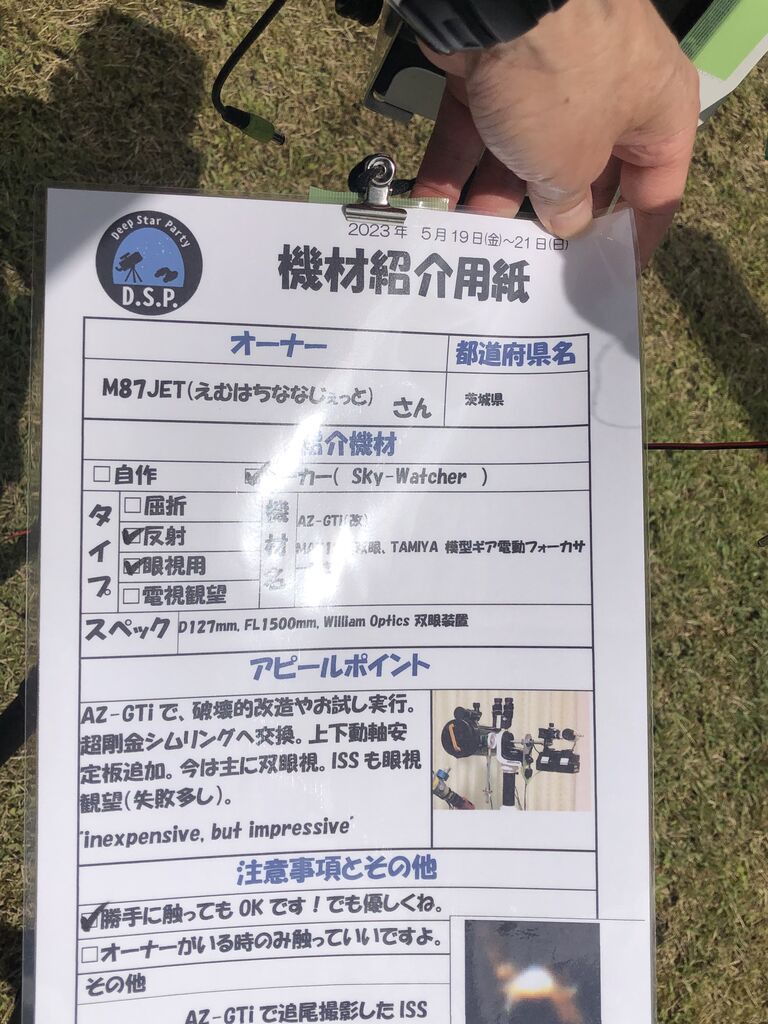 Deep Star Party
D.S.P.
2023年 5月19日(金)～21日(日)
機材紹介用紙
オーナー
都道府県名
M87JET(えむはちななじぇっと) さん
茨城県
紹介機材
□自作
カー( Sky-Watcher )
タイプ
□屈折
☑反射
☑眼視用
□電視観望
機材名
AZ-GTi(改)
双眼、TAMIYA 模型ギア電動フォーカサ
スペック
D127mm, FL1500mm, William Optics 双眼装置
アピールポイント
AZ-GTiで、破壊的改造やお試し実行。
超剛金シムリングへ交換。上下動軸安
定板追加。今は主に双眼視。ISSも眼視
観望(失敗多し)。
"inexpensive, but impressive"
注意事項とその他
☑勝手に触ってもOKです！でも優しくね。
□オーナーがいる時のみ触っていいですよ。
その他
AZ-GTiで追尾撮影したISS